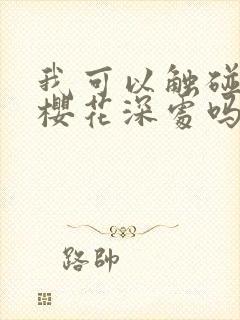 我可以触碰
樱花深处吗
路帥